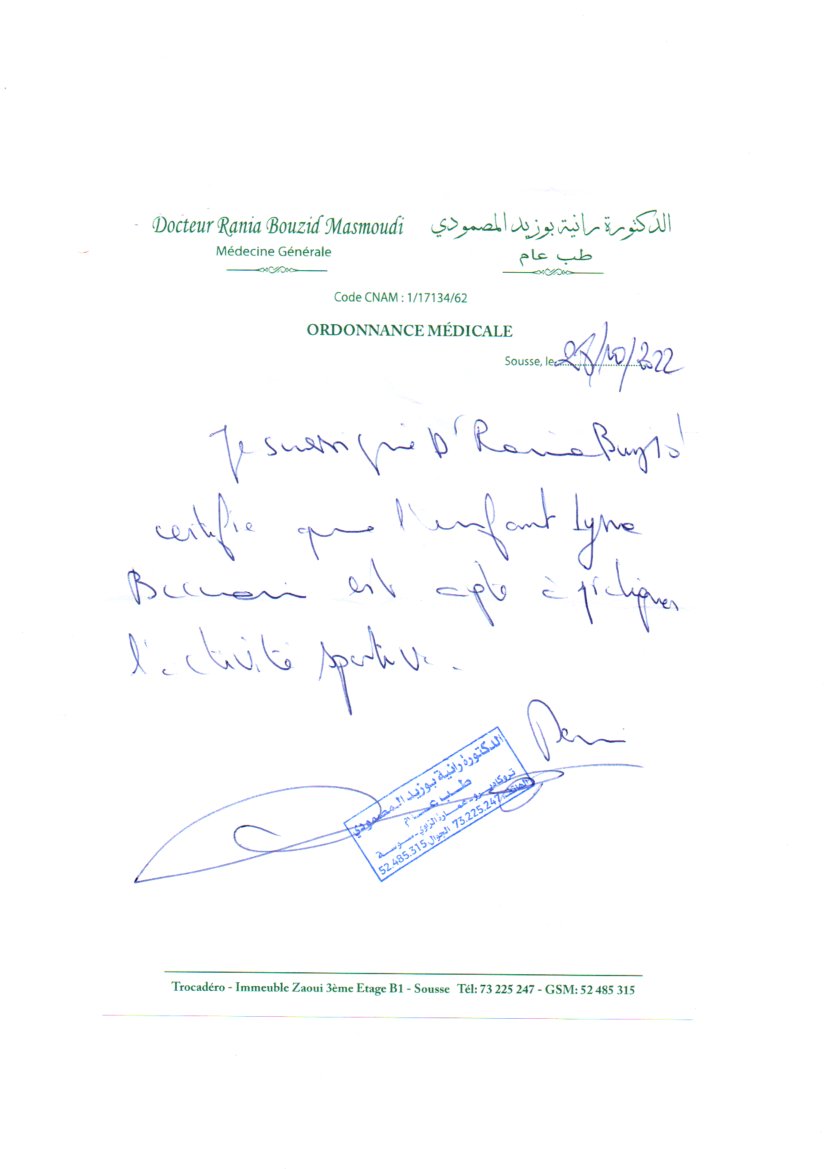 Docteur Rania Bouzid Masmoudi
الدكتورة رانية بوزيد المصمودي
Médecine Générale
طب عام
Code CNAM : 1/17134/62
ORDONNANCE MÉDICALE
Sousse, le /10/2022
Je soussigné Dr Rania Bouzid
certifie que l'enfant Lyna
est apte à pratiquer
l'activité sportive.
الدكتورة رانية بوزيد المصمودي
طب عام
تروكاديرو - عمارة الزاوي - سوسة
الهاتف: 73.225.247 الجوال 52.485.315
Trocadéro - Immeuble Zaoui 3ème Etage B1 - Sousse Tél: 73 225 247 - GSM: 52 485 315